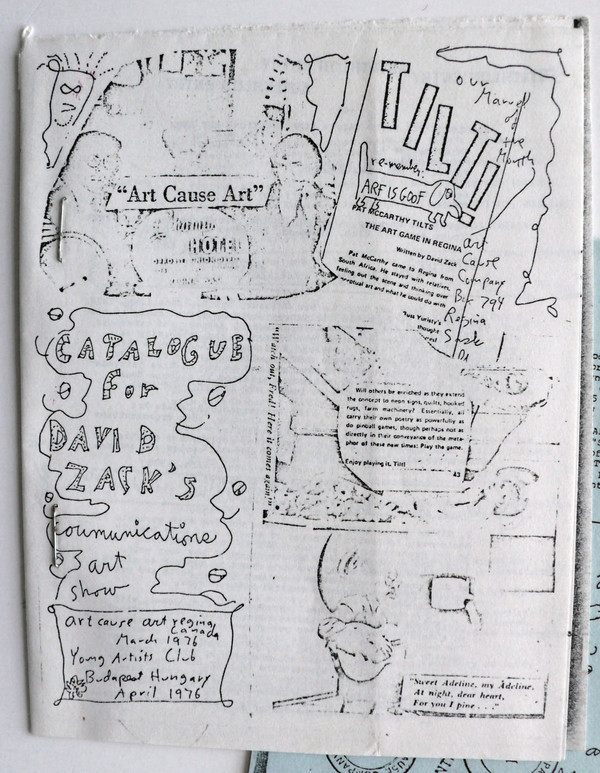 "Art Cause Art"
HOTEL
TILT!!
our
Manuel
of
the
Mouth
re-member:
ARF IS GOOF
PAT MCCARTHY TILTS
THE ART GAME IN REGINA
Written by David Zack
Pat McCarthy came to Regina from
South Africa. He stayed with relatives,
feeling out the scene and thinking over
conceptual art and what he could do with
Russ Yuristy's
thought
Art
Cause
Company
Box 794
Regina
Sask
CATALOGUE
for
DAVID
ZACK'S
communications
art
show
art cause art regina
Canada
March 1976
Young Artists Club
Budapest Hungary
April 1976
"Watch out, Fred! Here it comes again!"
Will others be enriched as they extend
the concept to neon signs, quilts, hooked
rugs, farm machinery? Essentially, all
carry their own poetry as powerfully as
do pinball games, though perhaps not as
directly in their conveyance of the meta-
phor of these new times: Play the game.
Enjoy playing it. Tilt!
43
"Sweet Adeline, my Adeline,
At night, dear heart,
For you I pine . . ."